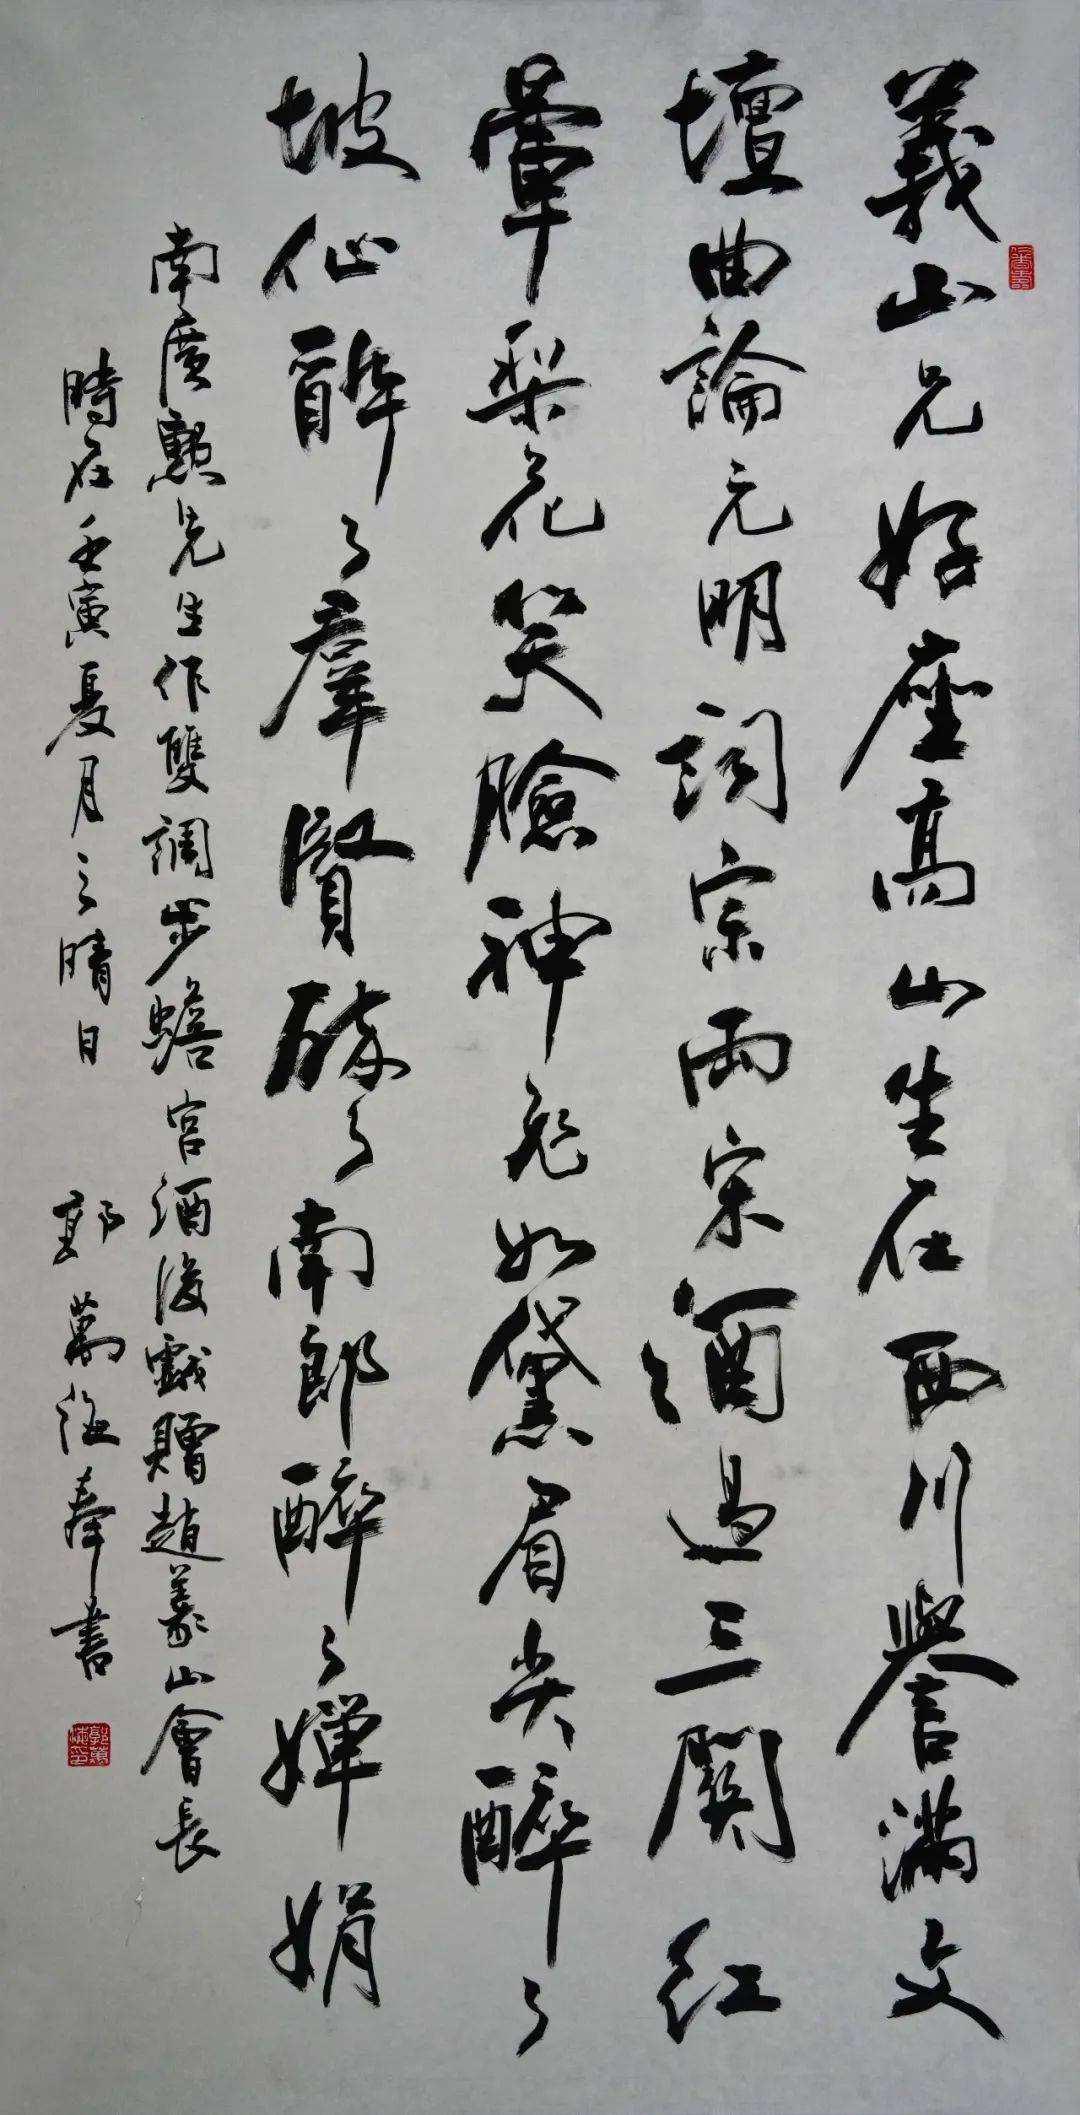 義山兄好座高山生在西川譽滿文
壇曲論元明詞宗兩宋酒過三關紅
暈梨花笑臉神飛如黛眉尖醉了
坡仙醉了羣賢醉了南郎醉了嬋娟
南廣勲先生作雙調步蟾宮酒後戲贈趙義山會長
時在壬寅夏月之晴日 郭萬海奉書